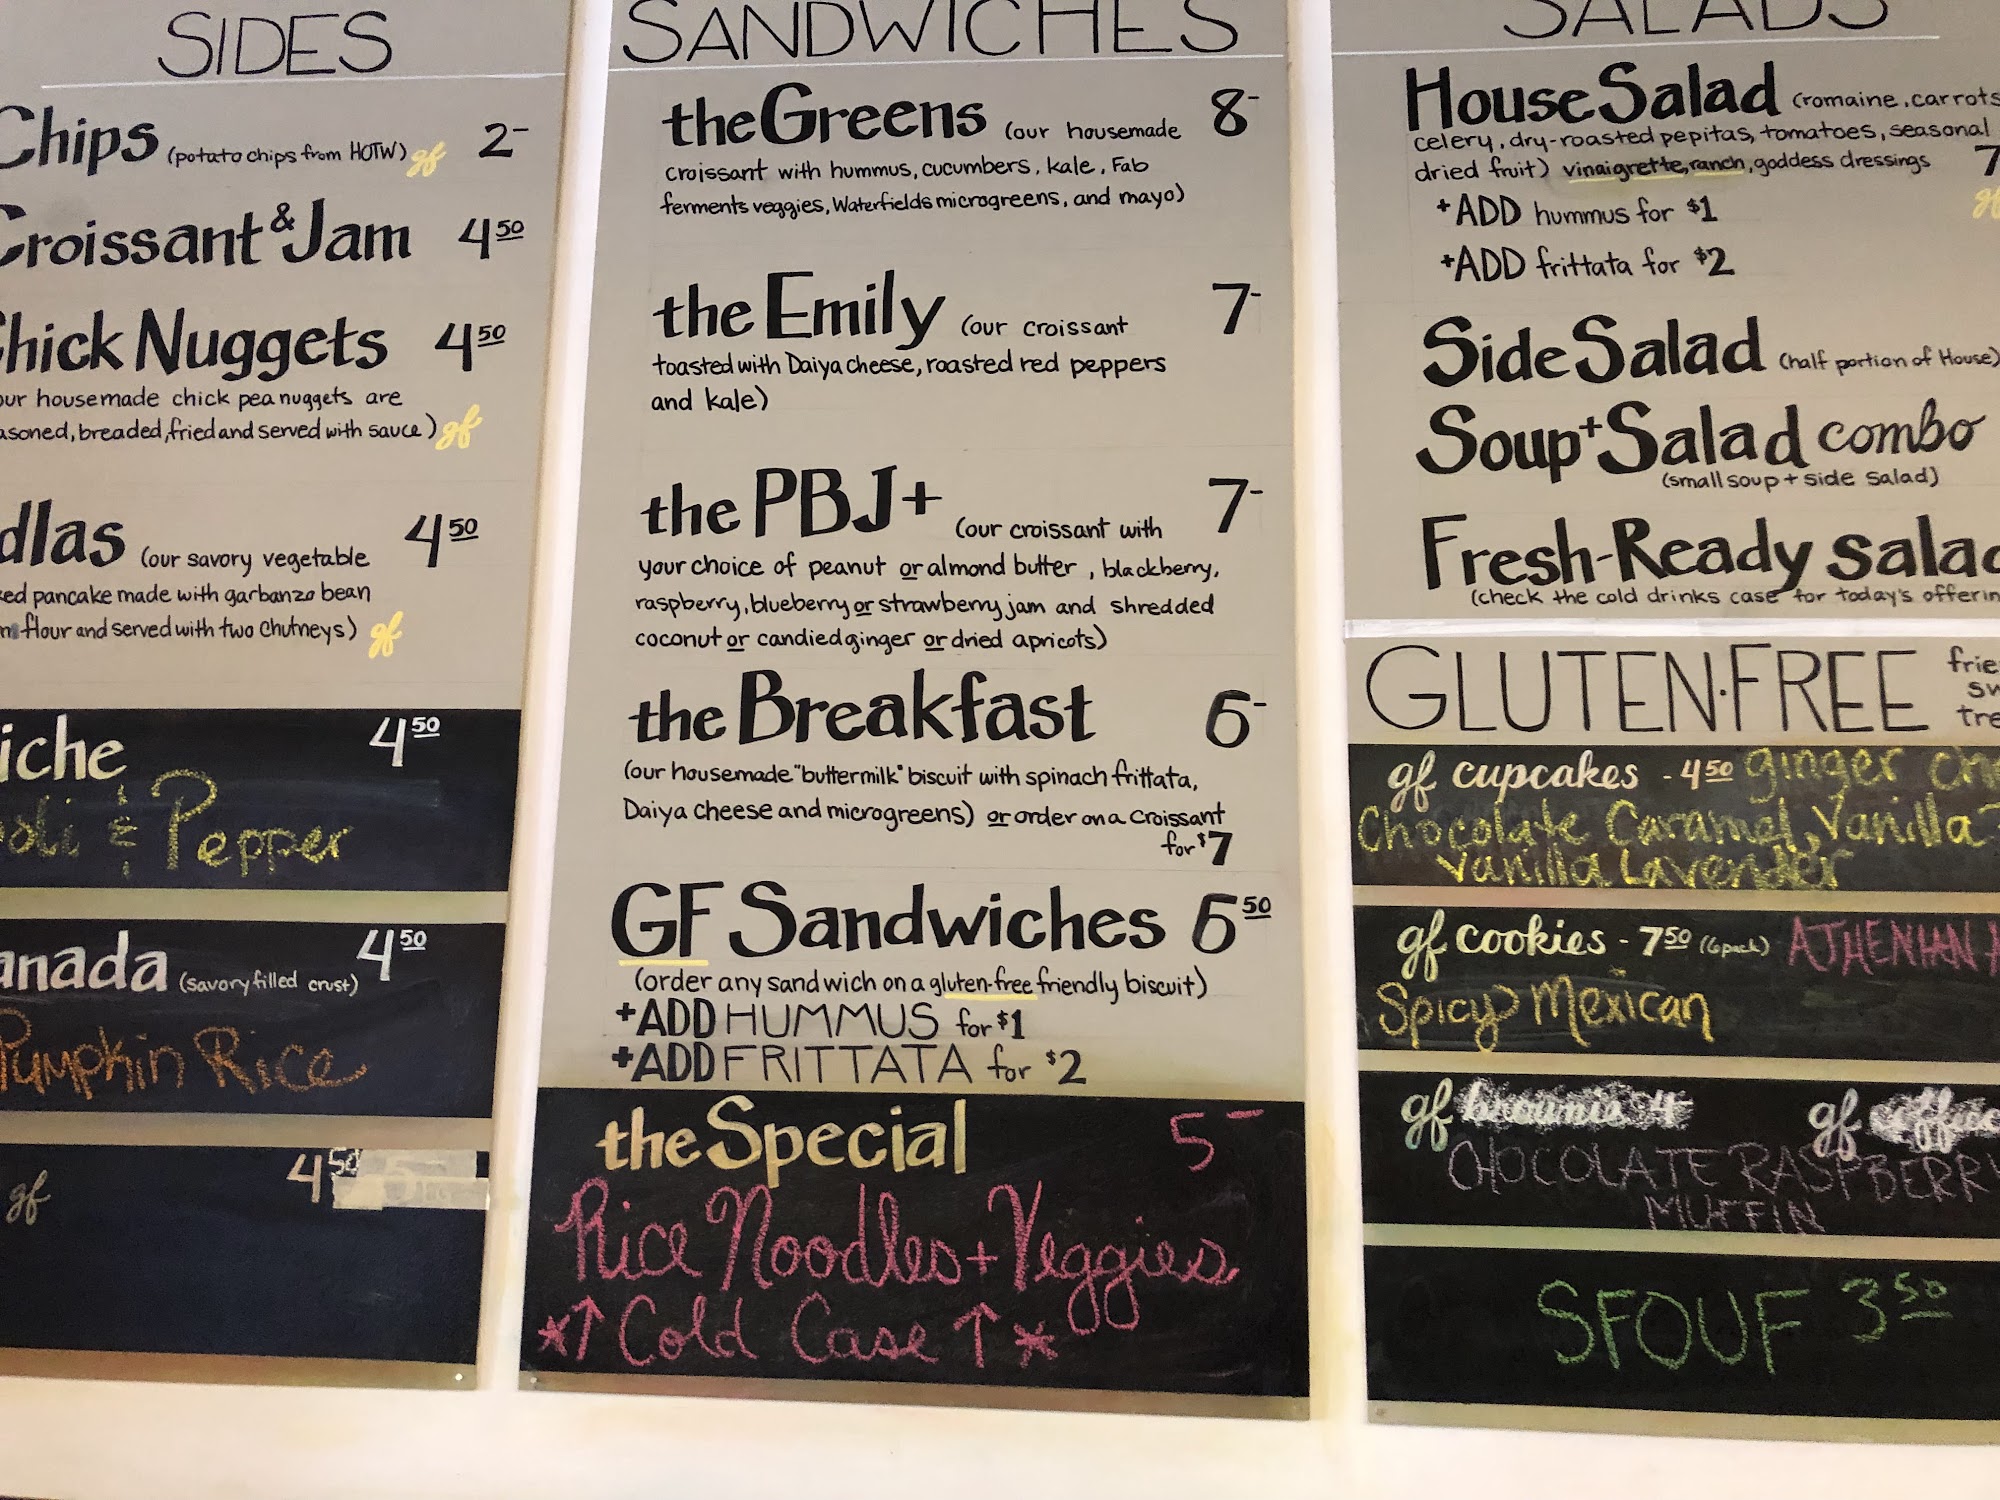 SIDES
Chips (potato chips from HOTW) gf 2-
Croissant & Jam 4 50
Chick Nuggets 4 50
our housemade chick pea nuggets are
asoned, breaded, fried and served with sauce) gf
dlas (our savory vegetable 4 50
ked pancake made with garbanzo bean
flour and served with two chutneys) gf
iche 4 50
& Pepper
anada (savory filled crust) 4 50
Pumpkin Rice
gf 4 50
SANDWICHES
the Greens (our housemade 8-
croissant with hummus, cucumbers, kale, Fab
ferments veggies, Waterfields microgreens, and mayo)
the Emily (our croissant 7-
toasted with Daiya cheese, roasted red peppers
and kale)
the PBJ+ (our croissant with 7-
your choice of peanut or almond butter, blackberry,
raspberry, blueberry or strawberry jam and shredded
coconut or candied ginger or dried apricots)
the Breakfast 6-
(our housemade "buttermilk" biscuit with spinach frittata,
Daiya cheese and microgreens) or order on a croissant
for $7
GF Sandwiches 6 50
(order any sandwich on a gluten-free friendly biscuit)
+ADD HUMMUS for $1
+ADD FRITTATA for $2
the Special 5-
Rice Noodles + Veggies
*↑ Cold Case ↑*
SALADS
House Salad (romaine, carrots
celery, dry-roasted pepitas, tomatoes, seasonal
dried fruit) vinaigrette, ranch, goddess dressings 7
gf
+ADD hummus for $1
+ADD frittata for $2
Side Salad (half portion of House)
Soup + Salad combo
(small soup + side salad)
Fresh-Ready salad
(check the cold drinks case for today's offerin
GLUTEN-FREE frie
sw
tre
gf cupcakes - 4 50 ginger
Chocolate Caramel, Vanilla
Vanilla Lavender
gf cookies - 7 50 (6 pack) ATHENIAN
Spicy Mexican
gf brownie 4 gf
CHOCOLATE RASPBERRY
MUFFIN
SFOUF 3 50